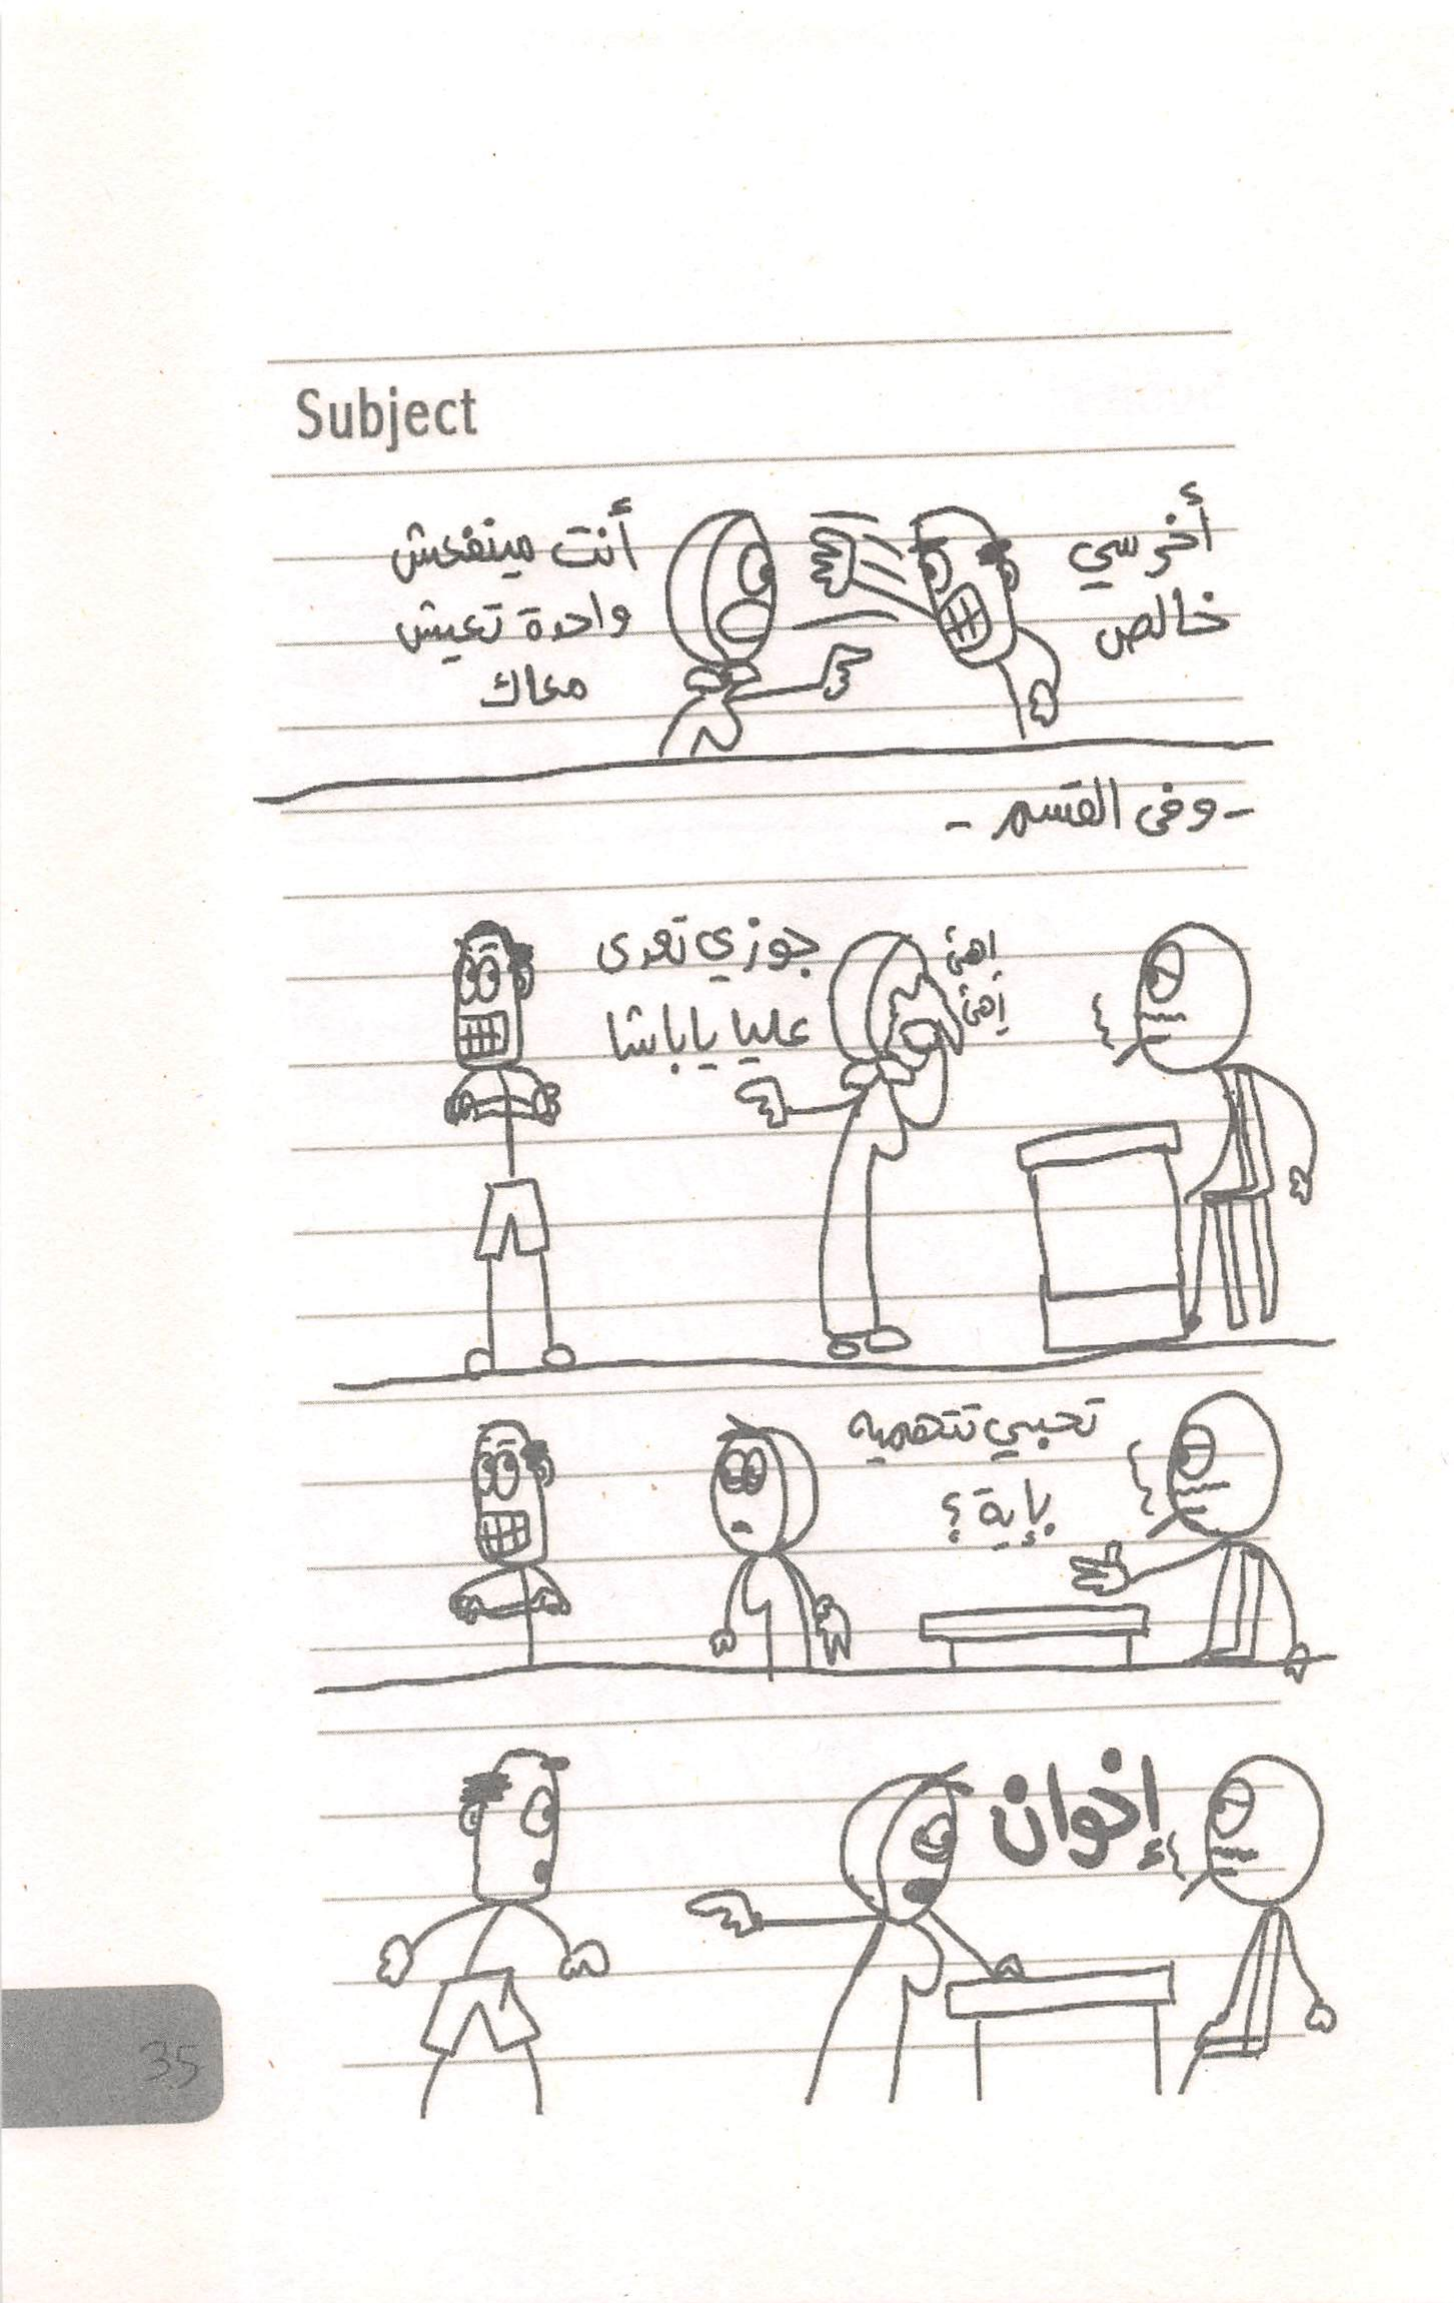 Subject
أخرسي
خالص
أنت مينفعش
واحدة تعيش
معاك
- وفى القسم -
اهئ
إهئ
جوزي تعدى
عليا يا باشا
تحبي تتهميه
بإية؟
إخوان
35